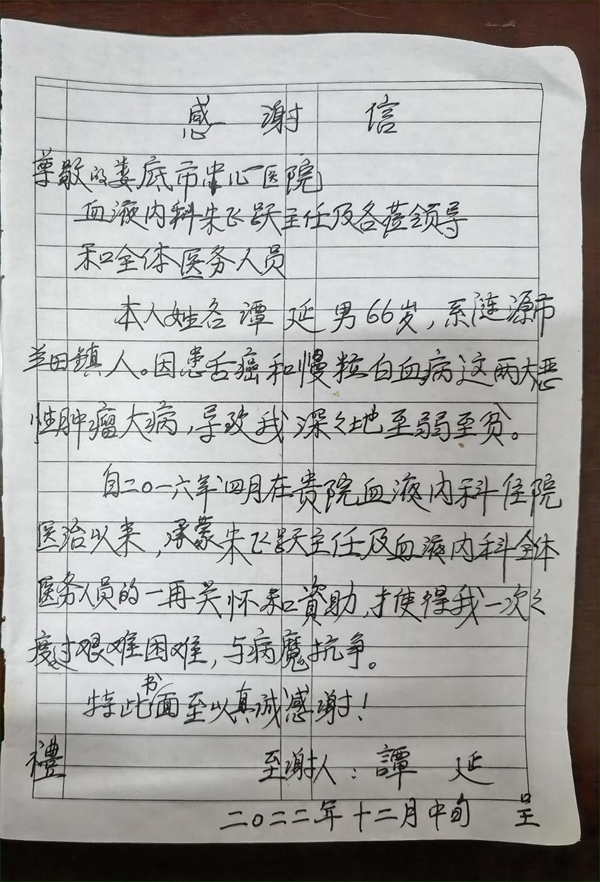 感谢信
尊敬的娄底市中心医院
血液内科朱飞跃主任及各位领导
和全体医务人员
本人姓名谭延男66岁,系涟源市
兰田鎮人。因患舌癌和慢粒白血病这两大恶
性肿瘤大病,导致我深深地至弱至贫。
自二〇一六年四月在贵院血液内科住院
医治以来,承蒙朱飞跃主任及血液内科全体
医务人员的一再关怀和資助,才使得我一次次
度过艰难困难,与病魔抗争。
特此书面至以真诚感谢!
禮 至谢人:譚延
二〇二二年十二月中旬 呈